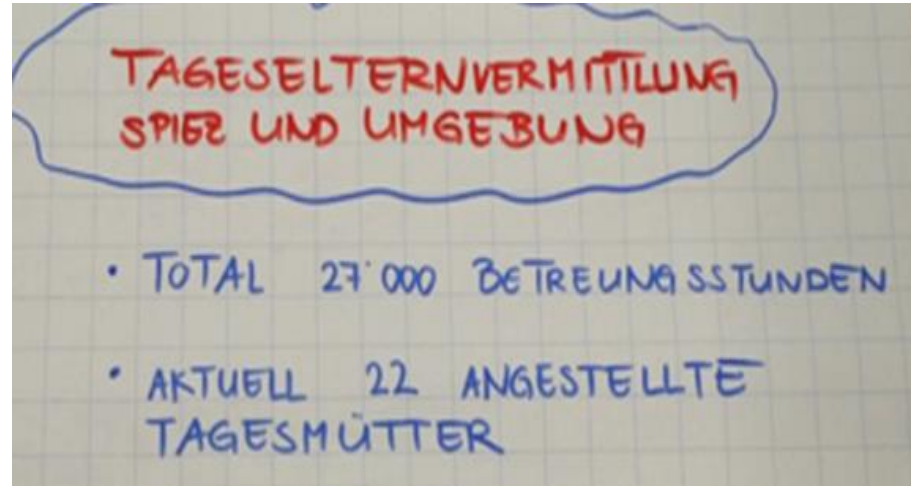 TAGESELTERNVERMITTLUNG
SPIEZ UND UMGEBUNG
• TOTAL 27'000 BETREUNGSSTUNDEN
• AKTUELL 22 ANGESTELLTE
TAGESMÜTTER